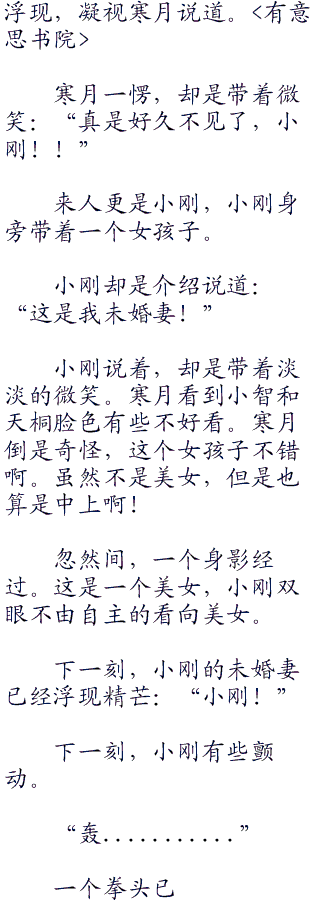 浮现，凝视寒月说道。<有意
思书院>
寒月一愣，却是带着微
笑：“真是好久不见了，小
刚！！”
来人更是小刚，小刚身
旁带着一个女孩子。
小刚却是介绍说道：
“这是我未婚妻！”
小刚说着，却是带着淡
淡的微笑。寒月看到小智和
天桐脸色有些不好看。寒月
倒是奇怪，这个女孩子不错
啊。虽然不是美女，但是也
算是中上啊！
忽然间，一个身影经
过。这是一个美女，小刚双
眼不由自主的看向美女。
下一刻，小刚的未婚妻
已经浮现精芒：“小刚！”
下一刻，小刚有些颤
动。
“轰...........”
一个拳头已